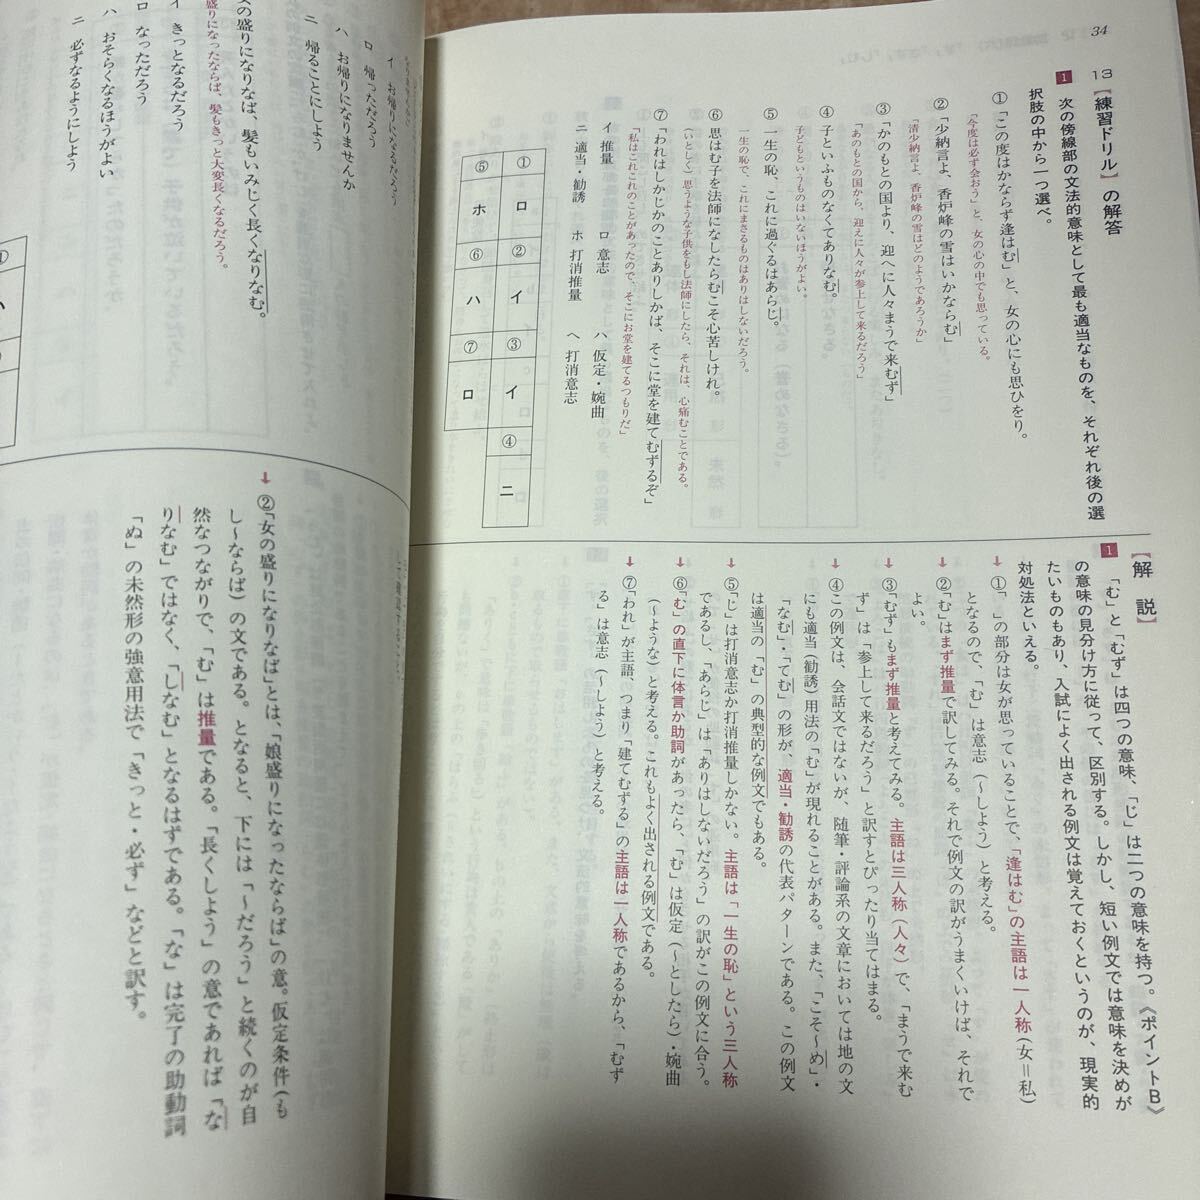 34
13【練習ドリル】の解答
1 次の傍線部の文法的意味として最も適当なものを、それぞれ後の選
択肢の中から一つ選べ。
①「この度はかならず逢はむ」と、女の心にも思ひをり。
「今度は必ず会おう」と、女の心の中でも思っている。
②「少納言よ、香炉峰の雪はいかならむ」
「清少納言よ、香炉峰の雪はどのようであろうか」
③「かのもとの国より、迎へに人々まうで来むず」
「あのもとの国から、迎えに人々が参上して来るだろう」
④子といふものなくてありなむ。
子どもというものはいないほうがよい。
⑤一生の恥、これに過ぐるはあらじ。
一生の恥で、これにまさるものはありはしないだろう。
⑥思はむ子を法師になしたらむこそ心苦しけれ。
(いとしく)思うような子供をもし法師にしたら、それは、心痛むことである。
⑦「われはしかじかのことありしかば、そこに堂を建てむずるぞ」
「私はこれこれのことがあったので、そこにお堂を建てるつもりだ」
イ 推量 ロ 意志 ハ 仮定・婉曲
ニ 適当・勧誘 ホ 打消推量 ヘ 打消意志
① ロ ② イ ③ イ ④ ニ
⑤ ホ ⑥ ハ ⑦ ロ
【解 説】
1 「む」と「むず」は四つの意味、「じ」は二つの意味を持つ。《ポイントB》
の意味の見分け方に従って、区別する。しかし、短い例文では意味を決めが
たいものもあり、入試によく出される例文は覚えておくというのが、現実的
対処法といえる。
↓①「 」の部分は女が思っていることで、「逢はむ」の主語は一人称(女=私)
となるので、「む」は意志(〜しよう)と考える。
↓②「む」はまず推量で訳してみる。それで例文の訳がうまくいけば、それで
よい。
↓③「むず」もまず推量と考えてみる。主語は三人称(人々)で、「まうで来む
ず」は「参上して来るだろう」と訳すとぴったり当てはまる。
↓④この例文は、会話文ではないが、随筆・評論系の文章においては地の文
にも適当(勧誘)用法の「む」が現れることがある。また、「こそ〜め」・
「なむ」・「てむ」の形が、適当・勧誘の代表パターンである。この例文
は適当の「む」の典型的な例文でもある。
↓⑤「じ」は打消意志か打消推量しかない。主語は「一生の恥」という三人称
であるし、「あらじ」は「ありはしないだろう」の訳がこの例文に合う。
↓⑥「む」の直下に体言か助詞があったら、「む」は仮定(〜としたら)・婉曲
(〜ような)と考える。これもよく出される例文である。
↓⑦「われ」が主語、つまり「建てむずる」の主語は一人称であるから、「むず
る」は意志(〜しよう)と考える。
イ お帰りになるだろう
ロ 帰っただろう
ハ お帰りになりませんか
ニ 帰ることにしよう
女の盛りになりなば、髪もいみじく長くなりなむ。
盛りになったならば、髪もきっと大変長くなるだろう。
イ きっとなるだろう
ロ なっただろう
ハ おそらくなるほうがよい
ニ 必ずなるようにしよう
↓②「女の盛りになりなば」とは、「娘盛りになったならば」の意。仮定条件(も
し〜ならば)の文である。となると、下には「〜だろう」と続くのが自
然なつながりで、「む」は推量である。「長くしよう」の意であれば「な
りなむ」ではなく、「しなむ」となるはずである。「な」は完了の助動詞
「ぬ」の未然形の強意用法で「きっと・必ず」などと訳す。